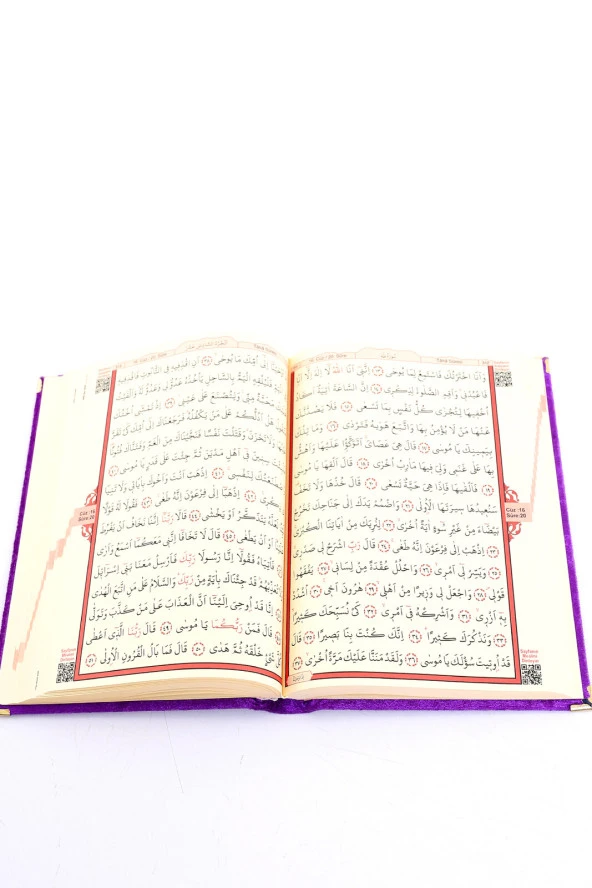 Tâhâ Sûresi
وَاَنَا اخْتَرْتُكَ فَاسْتَمِعْ لِمَا يُوحٰى ﴿١٣﴾ اِنَّنٖٓي اَنَا اللّٰهُ لَٓا اِلٰهَ اِلَّٓا اَنَا۬
فَاعْبُدْنٖي وَاَقِمِ الصَّلٰوةَ لِذِكْرٖي ﴿١٤﴾ اِنَّ السَّاعَةَ اٰتِيَةٌ اَكَادُ
اُخْفٖيهَا لِتُجْزٰى كُلُّ نَفْسٍ بِمَا تَسْعٰى ﴿١٥﴾ فَلَا يَصُدَّنَّكَ
عَنْهَا مَنْ لَا يُؤْمِنُ بِهَا وَاتَّبَعَ هَوٰيهُ فَتَرْدٰى ﴿١٦﴾ وَمَا تِلْكَ
بِيَمٖينِكَ يَا مُوسٰى ﴿١٧﴾ قَالَ هِيَ عَصَايَۚ اَتَوَكَّؤُا عَلَيْهَا وَاَهُشُّ
بِهَا عَلٰى غَنَمٖي وَلِيَ فٖيهَا مَاٰرِبُ اُخْرٰى ﴿١٨﴾ قَالَ اَلْقِهَا يَا مُوسٰى
﴿١٩﴾ فَاَلْقٰيهَا فَاِذَا هِيَ حَيَّةٌ تَسْعٰى ﴿٢٠﴾ قَالَ خُذْهَا وَلَا تَخَفْ
سَنُعٖيدُهَا سٖيرَتَهَا الْاُولٰى ﴿٢١﴾ وَاضْمُمْ يَدَكَ اِلٰى جَنَاحِكَ تَخْرُجْ
بَيْضَٓاءَ مِنْ غَيْرِ سُٓوءٍ اٰيَةً اُخْرٰى ﴿٢٢﴾ لِنُرِيَكَ مِنْ اٰيَاتِنَا الْكُبْرٰى
﴿٢٣﴾ اِذْهَبْ اِلٰى فِرْعَوْنَ اِنَّهُ طَغٰى ﴿٢٤﴾ قَالَ رَبِّ اشْرَحْ لٖي صَدْرٖي
﴿٢٥﴾ وَيَسِّرْ لٖٓي اَمْرٖي ﴿٢٦﴾ وَاحْلُلْ عُقْدَةً مِنْ لِسَانٖي ﴿٢٧﴾ يَفْقَهُوا
قَوْلٖي ﴿٢٨﴾ وَاجْعَلْ لٖي وَزٖيرًا مِنْ اَهْلٖي ﴿٢٩﴾ هٰرُونَ اَخٖي ﴿٣٠﴾ اُشْدُدْ
بِهٖٓ اَزْرٖي ﴿٣١﴾ وَاَشْرِكْهُ فٖٓي اَمْرٖي ﴿٣٢﴾ كَيْ نُسَبِّحَكَ كَثٖيرًا
﴿٣٣﴾ وَنَذْكُرَكَ كَثٖيرًا ﴿٣٤﴾ اِنَّكَ كُنْتَ بِنَا بَصٖيرًا ﴿٣٥﴾ قَالَ
قَدْ اُوتٖيتَ سُؤْلَكَ يَا مُوسٰى ﴿٣٦﴾ وَلَقَدْ مَنَنَّا عَلَيْكَ مَرَّةً اُخْرٰى ﴿٣٧﴾
Cüz :16
Sûre:20
Tâhâ Sûresi
اِلٰٓى اُمِّكَ مَا يُوحٰى ﴿٣٨﴾ اَنِ اقْذِفٖيهِ فِي التَّابُوتِ فَاقْذِفٖيهِ
فَلْيُلْقِهِ الْيَمُّ بِالسَّاحِلِ يَأْخُذْهُ عَدُوٌّ لٖي وَعَدُوٌّ لَهُ وَاَلْقَيْتُ
مَحَبَّةً مِنّٖي وَلِتُصْنَعَ عَلٰى عَيْنٖي ﴿٣٩﴾ اِذْ تَمْشٖٓي اُخْتُكَ
هَلْ اَدُلُّكُمْ عَلٰى مَنْ يَكْفُلُهُ فَرَجَعْنَاكَ اِلٰٓى اُمِّكَ كَيْ تَقَرَّ
وَلَا تَحْزَنَ وَقَتَلْتَ نَفْسًا فَنَجَّيْنَاكَ مِنَ الْغَمِّ وَفَتَنَّاكَ
سِنٖينَ فٖٓي اَهْلِ مَدْيَنَ ثُمَّ جِئْتَ عَلٰى قَدَرٍ يَا مُوسٰى ﴿٤٠﴾
وَاصْطَنَعْتُكَ لِنَفْسٖي ﴿٤١﴾ اِذْهَبْ اَنْتَ وَاَخُوكَ بِاٰيَاتٖي وَلَا تَنِيَا
ذِكْرٖي ﴿٤٢﴾ اِذْهَبَٓا اِلٰى فِرْعَوْنَ اِنَّهُ طَغٰى ﴿٤٣﴾ فَقُولَا لَهُ قَوْلًا
لَعَلَّهُ يَتَذَكَّرُ اَوْ يَخْشٰى ﴿٤٤﴾ قَالَا رَبَّنَٓا اِنَّنَا نَخَافُ اَنْ يَفْرُطَ
عَلَيْنَٓا اَوْ اَنْ يَطْغٰى ﴿٤٥﴾ قَالَ لَا تَخَافَٓا اِنَّنٖي مَعَكُمَٓا اَسْمَعُ وَاَرٰى
فَأْتِيَاهُ فَقُولَٓا اِنَّا رَسُولَا رَبِّكَ فَاَرْسِلْ مَعَنَا بَنٖٓي اِسْرَٓائٖلَ
تُعَذِّبْهُمْ قَدْ جِئْنَاكَ بِاٰيَةٍ مِنْ رَبِّكَ وَالسَّلَامُ عَلٰى مَنِ اتَّبَعَ الْهُدٰى
اِنَّا قَدْ اُوحِيَ اِلَيْنَٓا اَنَّ الْعَذَابَ عَلٰى مَنْ كَذَّبَ وَتَوَلّٰى
قَالَ فَمَنْ رَبُّكُمَا يَا مُوسٰى ﴿٤٩﴾ قَالَ رَبُّنَا الَّذٖٓي اَعْطٰى
كُلَّ شَيْءٍ خَلْقَهُ ثُمَّ هَدٰى ﴿٥٠﴾ قَالَ فَمَا بَالُ الْقُرُونِ الْاُولٰى ﴿٥١﴾
Cüz :16
Sûre:20